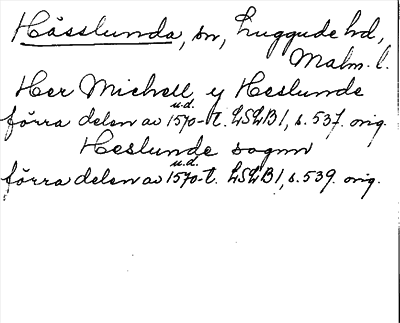 Hässlunda, sn, Luggude hd,
Malm. l.
Her Michell y Heslunde
u.d.
förra delen av 1570-t. LSLB1, s. 537. orig.
Heslunde sognn
u.d.
förra delen av 1570-t. LSLB1, s. 539. orig.